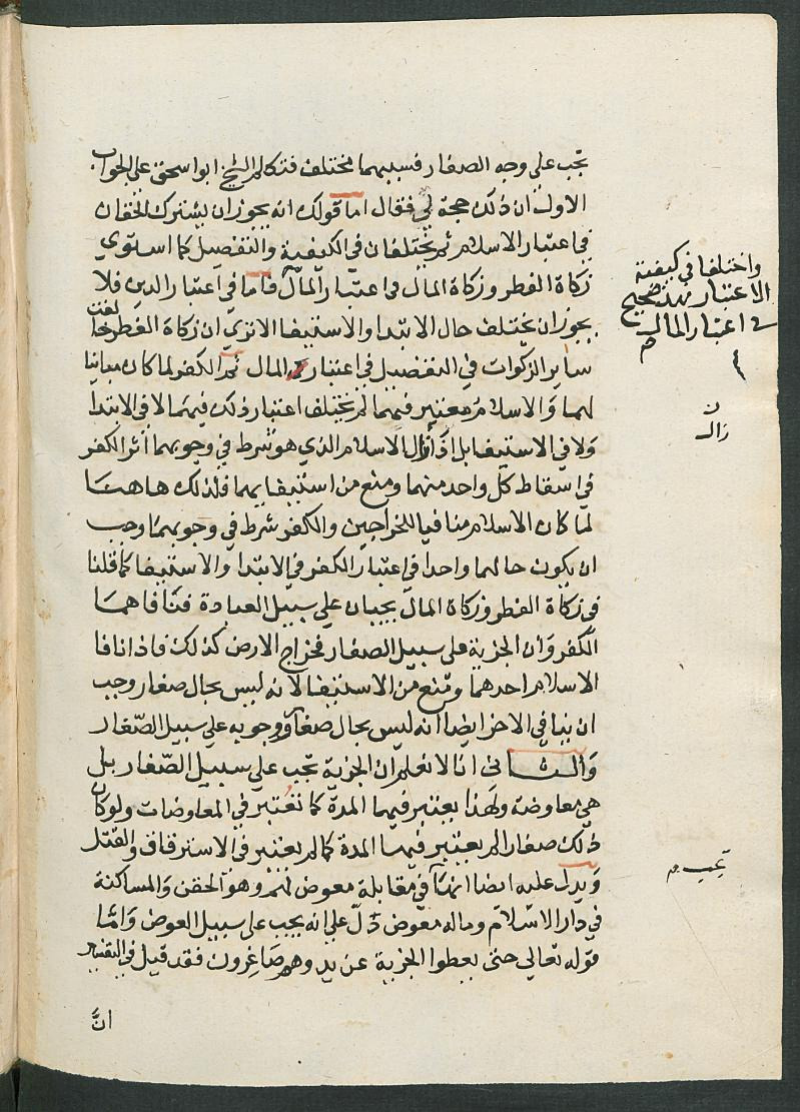 تجب على وجه الصغار فسببهما مختلف فتكلم الشيخ ابو اسحق على الجواب
الاول ان ذلك حجة لي فقال اما قولك انه يجوز ان يشترك الحقان
في اعتبار الاسلام ثم يختلفان في الكيفية والتفصيل كما استوي
زكاة الفطر وزكاة المال في اعتبار المال فاما في اعتبار الدين فلا
يجوز ان يختلف حال الابتدا والاستيفا الا تري ان زكاة الفطر خالفت
ساير الزكوات في التفضيل في اعتبار المال ثم الكفر لما كان مباينا
لهما والاسلام معتبر فيهما لم يختلف اعتبار ذلك فيهما لا في الابتدا
ولا في الاستيفا بل اذا زال الاسلام الذي هو شرط في وجوبهما اثر الكفر
في اسقاط كل واحد منهما ومنع من استيفايهما فلذلك هاهنا
لما كان الاسلام منافيا للخراجين والكفر شرط في وجوبهما وجب
ان يكون حالهما واحدا في اعتبار الكفر في الابتدا والاستيفا كما قلنا
في زكاة الفطر وزكاة المال يجبان علي سبيل العبادة فنافاهما
الكفر وان الجزية على سبيل الصغار فخراج الارض كذلك فاذا نافا
الاسلام احدهما ومنع من الاستيفا لانه ليس بحال صغار وجب
ان ينافي الاخر ايضا انه ليس بحال صغار ووجوبه على سبيل الصغار
والثاني انا لا نعلم ان الجزية تجب علي سبيل الصغار بل
هي معاوضة ولهذا يعتبر فيها المدة كما تعتبر في المعاوضات ولو كان
ذلك صغارا لم يعتبر فيها المدة كما لم يعتبر في الاسترقاق والقتل
ويدل عليه ايضا انها في مقابلة معوض لهم وهو الحقن والمساكنة
في دار الاسلام وماله معوض دل علي انه يجب على سبيل العوض واما
قوله تعالي حتى يعطوا الجزية عن يد وهم صاغرون فقد قيل في التفسير
ان
واختلفا في كيفية
الاعتبار فهذا صحيح
في اعتبار المال
ن
زال
تجب